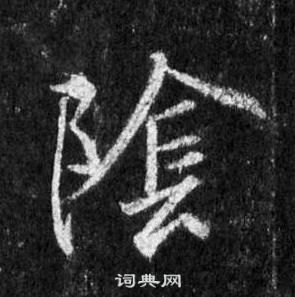 陰
词典网